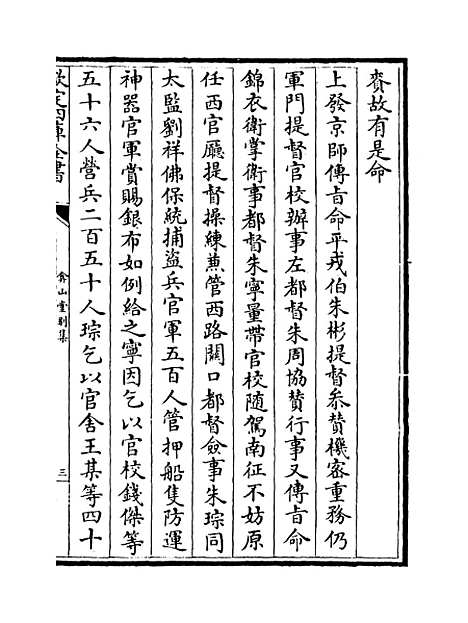 賚故有是命
上發京師傳㫖命平戎伯朱彬提督叅贊機密重務仍
軍門提督官校辦事左都督朱周協贊行事又傳㫖命
錦衣衛掌衛事都督朱寧量帶官校随駕南征不妨原
任西官廳提督操練蕪管西路關口都督僉事朱琮同
太監劉祥佛保統捕盜兵官軍五百人管押船隻防運
神器官軍賞賜銀布如例給之寧因乞以官校錢傑等
五十六人營兵二百五十人琮乞以官舎王某等四十
欽定四庫全書
弇山堂别集
三